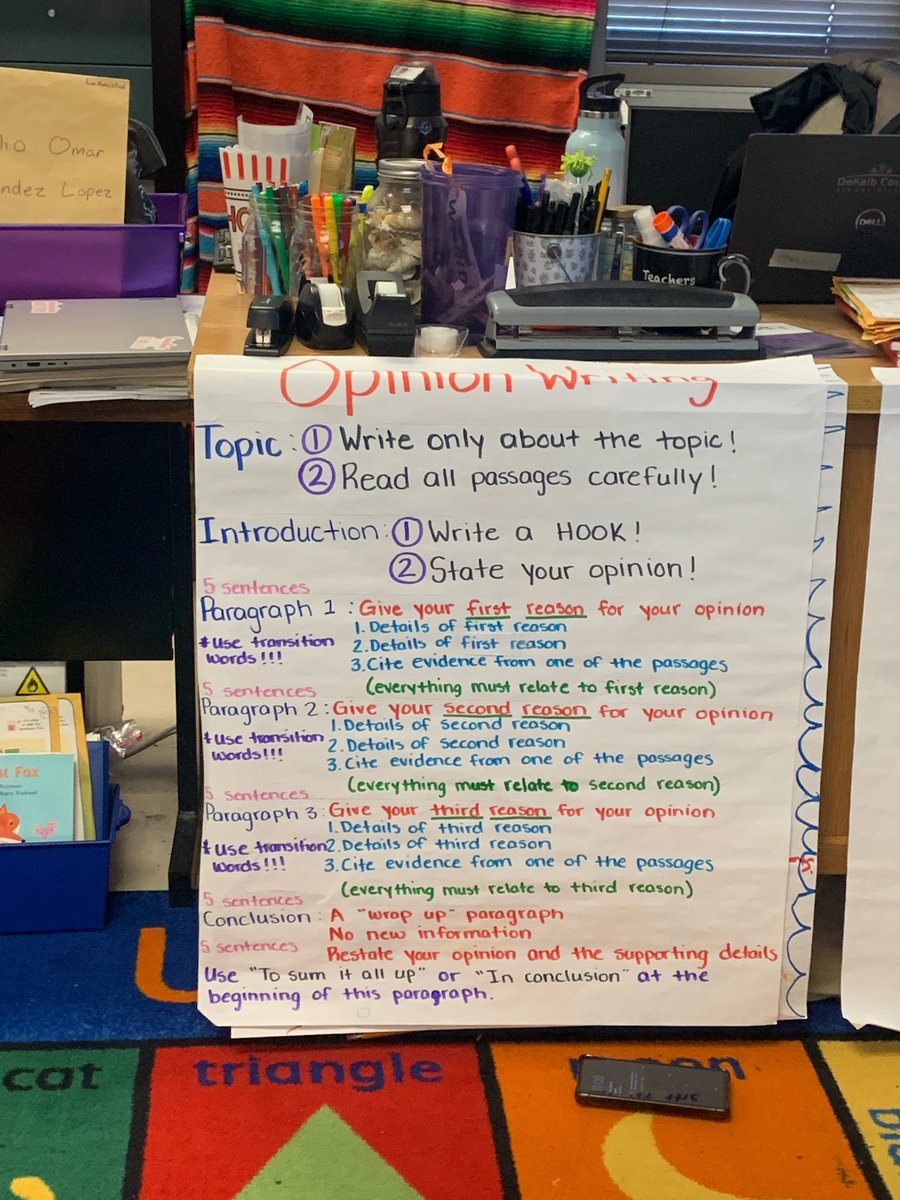 Omar
Lopez
Teachers
DeKalb Cou
DELL
Opinion Writing
Topic: ① Write only about the topic!
② Read all passages carefully!
Introduction: ① Write a HOOK!
② State your opinion!
5 sentences
Paragraph 1: Give your first reason for your opinion
1. Details of first reason
*Use transition words!!!
2. Details of first reason
3. Cite evidence from one of the passages
(everything must relate to first reason)
5 sentences
Paragraph 2: Give your second reason for your opinion
1. Details of second reason
*Use transition words!!!
2. Details of second reason
3. Cite evidence from one of the passages
(everything must relate to second reason)
5 sentences
Paragraph 3: Give your third reason for your opinion
1. Details of third reason
*Use transition words!!!
2. Details of third reason
3. Cite evidence from one of the passages
(everything must relate to third reason)
5 sentences
Conclusion: A "wrap up" paragraph
No new information
5 sentences
Restate your opinion and the supporting details
Use "To sum it all up" or "In conclusion" at the
beginning of this paragraph.
Fox
cat
triangle